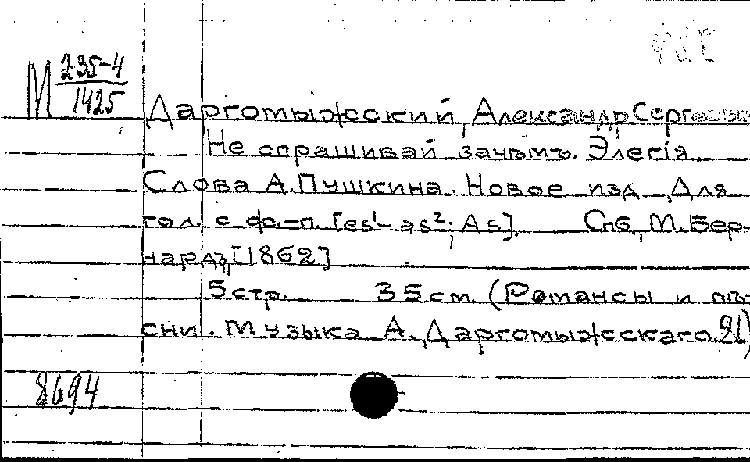 М 235-4
1425
Даргомыжский, Александр Сергеевич
Не спрашивай зачѣмъ. Элегія
Слова А. Пушкина. Новое изд. Для
гол. с фо-п. [es¹-as²; As]. Спб, М. Бер-
нардъ, [1862]
5 стр. 35 см. (Романсы и пѣ-
сни. Музыка А. Даргомыжскаго. 21)
8694